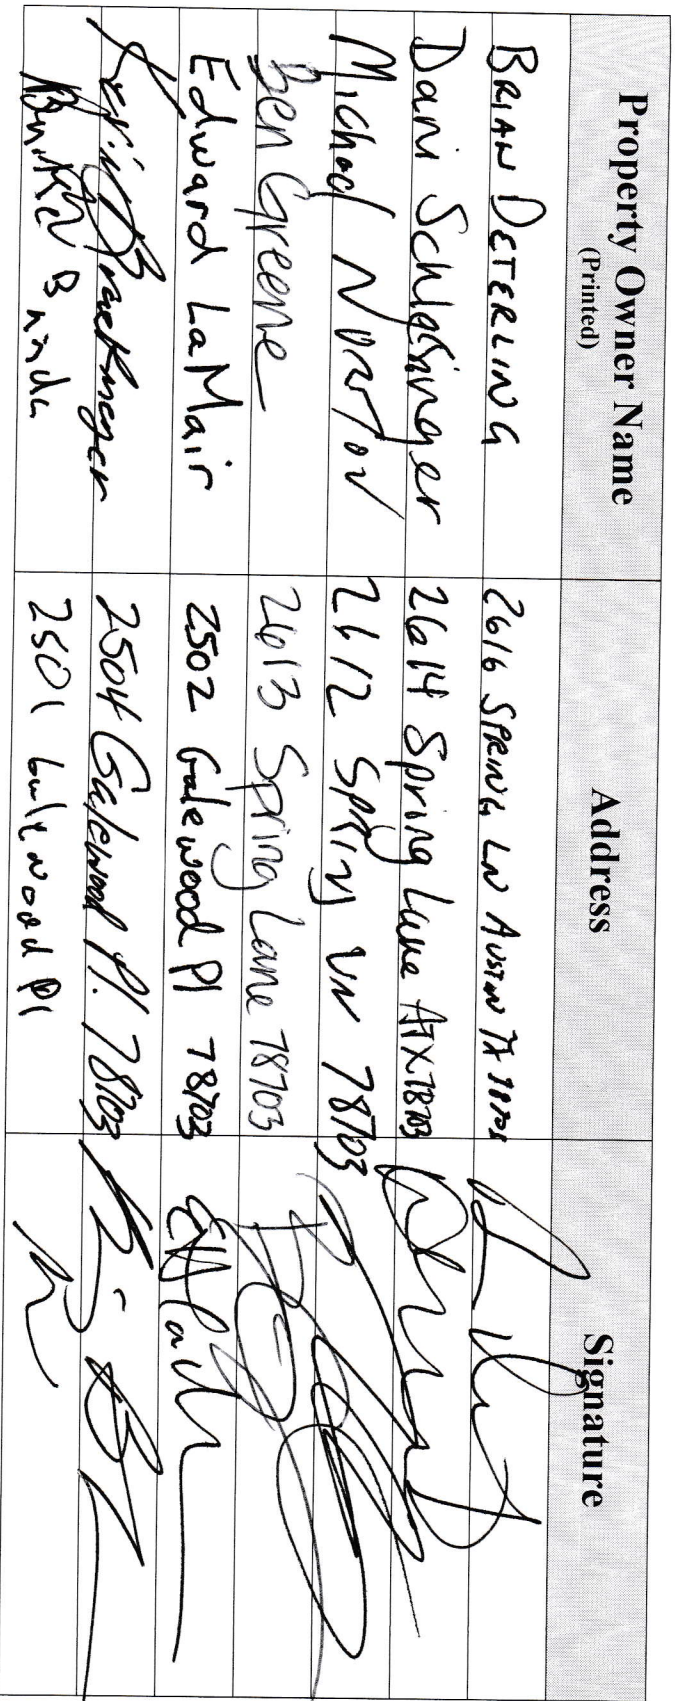 Property Owner Name Address Signature
(Printed)
BRIAN DETERLING 2616 SPRING LN AUSTIN TX
Dani Schlossinger 2614 Spring Lane ATX 78703
Michael Norton 2612 Spring LN 78703
Ben Greene 2613 Spring Lane 78703
Edward LaMair 2502 Galewood Pl 78703
2504 Galewood Pl. 78703
2501 Galewood Pl